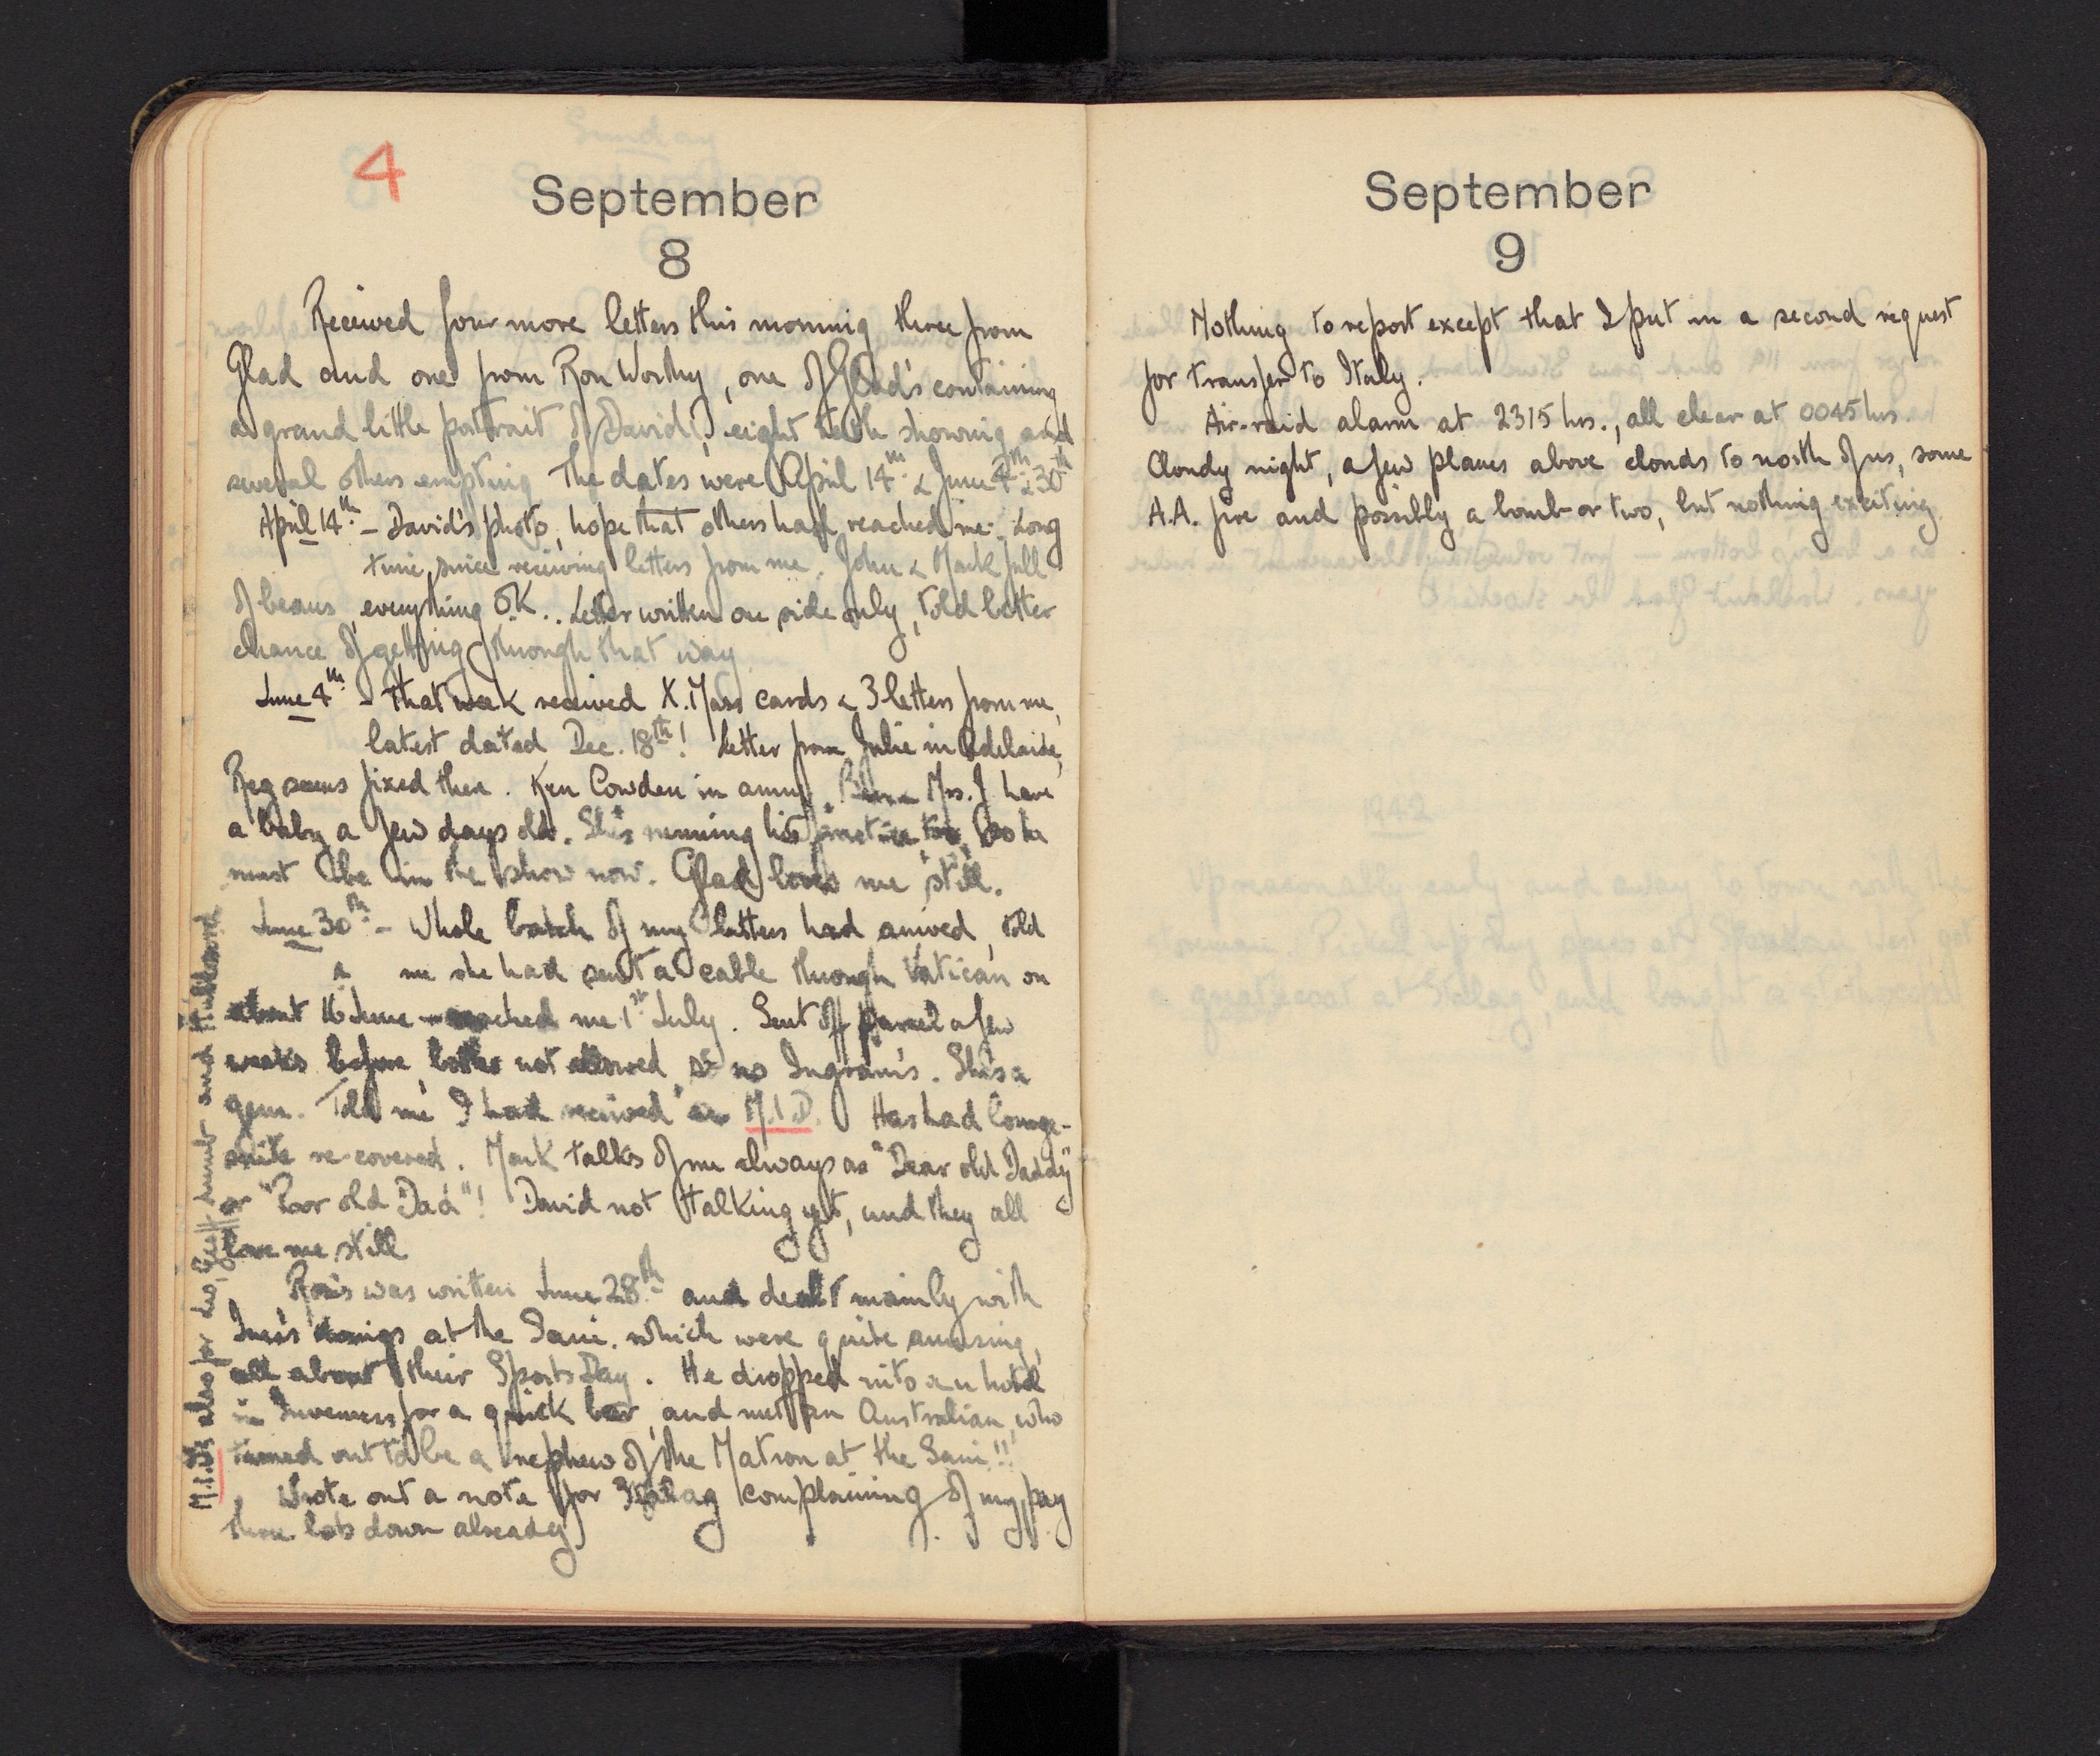 4
September
8
Received four more letters this morning three from
Glad and one from Ron Worthy, one of Glad's containing
a grand little portrait of David, eight teeth showing and
several others erupting. The dates were April 14th. & June 4th. & 30th
April 14th. - David's photo, hope that others had reached me. Long
time since receiving letters from me. John & Mark full
of beans, everything OK.. Letter written one side only, told better
chance of getting through that way
June 4th. - That week received X.Mass cards & 3 letters from me,
latest dated Dec. 18th! Letter from Julie in Adelaide,
Reg seems fixed there. Ken Cowden in army. Mrs. J have
a baby a few days old. She's running his practice too, so he
must be in the show now. Glad loves me still.
June 30th. - Whole batch of my letters had arrived, told
me she had sent a cable through Vatican on
about 16 June - reached me 1st July. Sent off parcel a few
weeks before, not allowed, so no Ingram's. She's a
gem. Told me I had received an M.I.D. Has had
quite re-covered. Mark talks of me always as "Dear old Daddy"
or "Poor old Dad"! David not talking yet, and they all
love me still
Ron's was written June 28th. and dealt mainly with
doings at the Sani. which were quite amusing,
all about their Sports Day. He dropped into an hotel
in Inverness for a quick beer, and met an Australian, who
turned out to be a nephew of the Matron at the Sani!!
Wrote out a note for Stalag complaining of my pay
three lots down already.
M.I.D's also for Les, and
September
9
Nothing to report except that I put in a second request
for transfer to Italy.
Air-raid alarm at 2315 hrs., all clear at 0045 hrs.
Cloudy night, a few planes above clouds to north of us, some
A.A. fire and possibly a bomb or two, but nothing exciting.